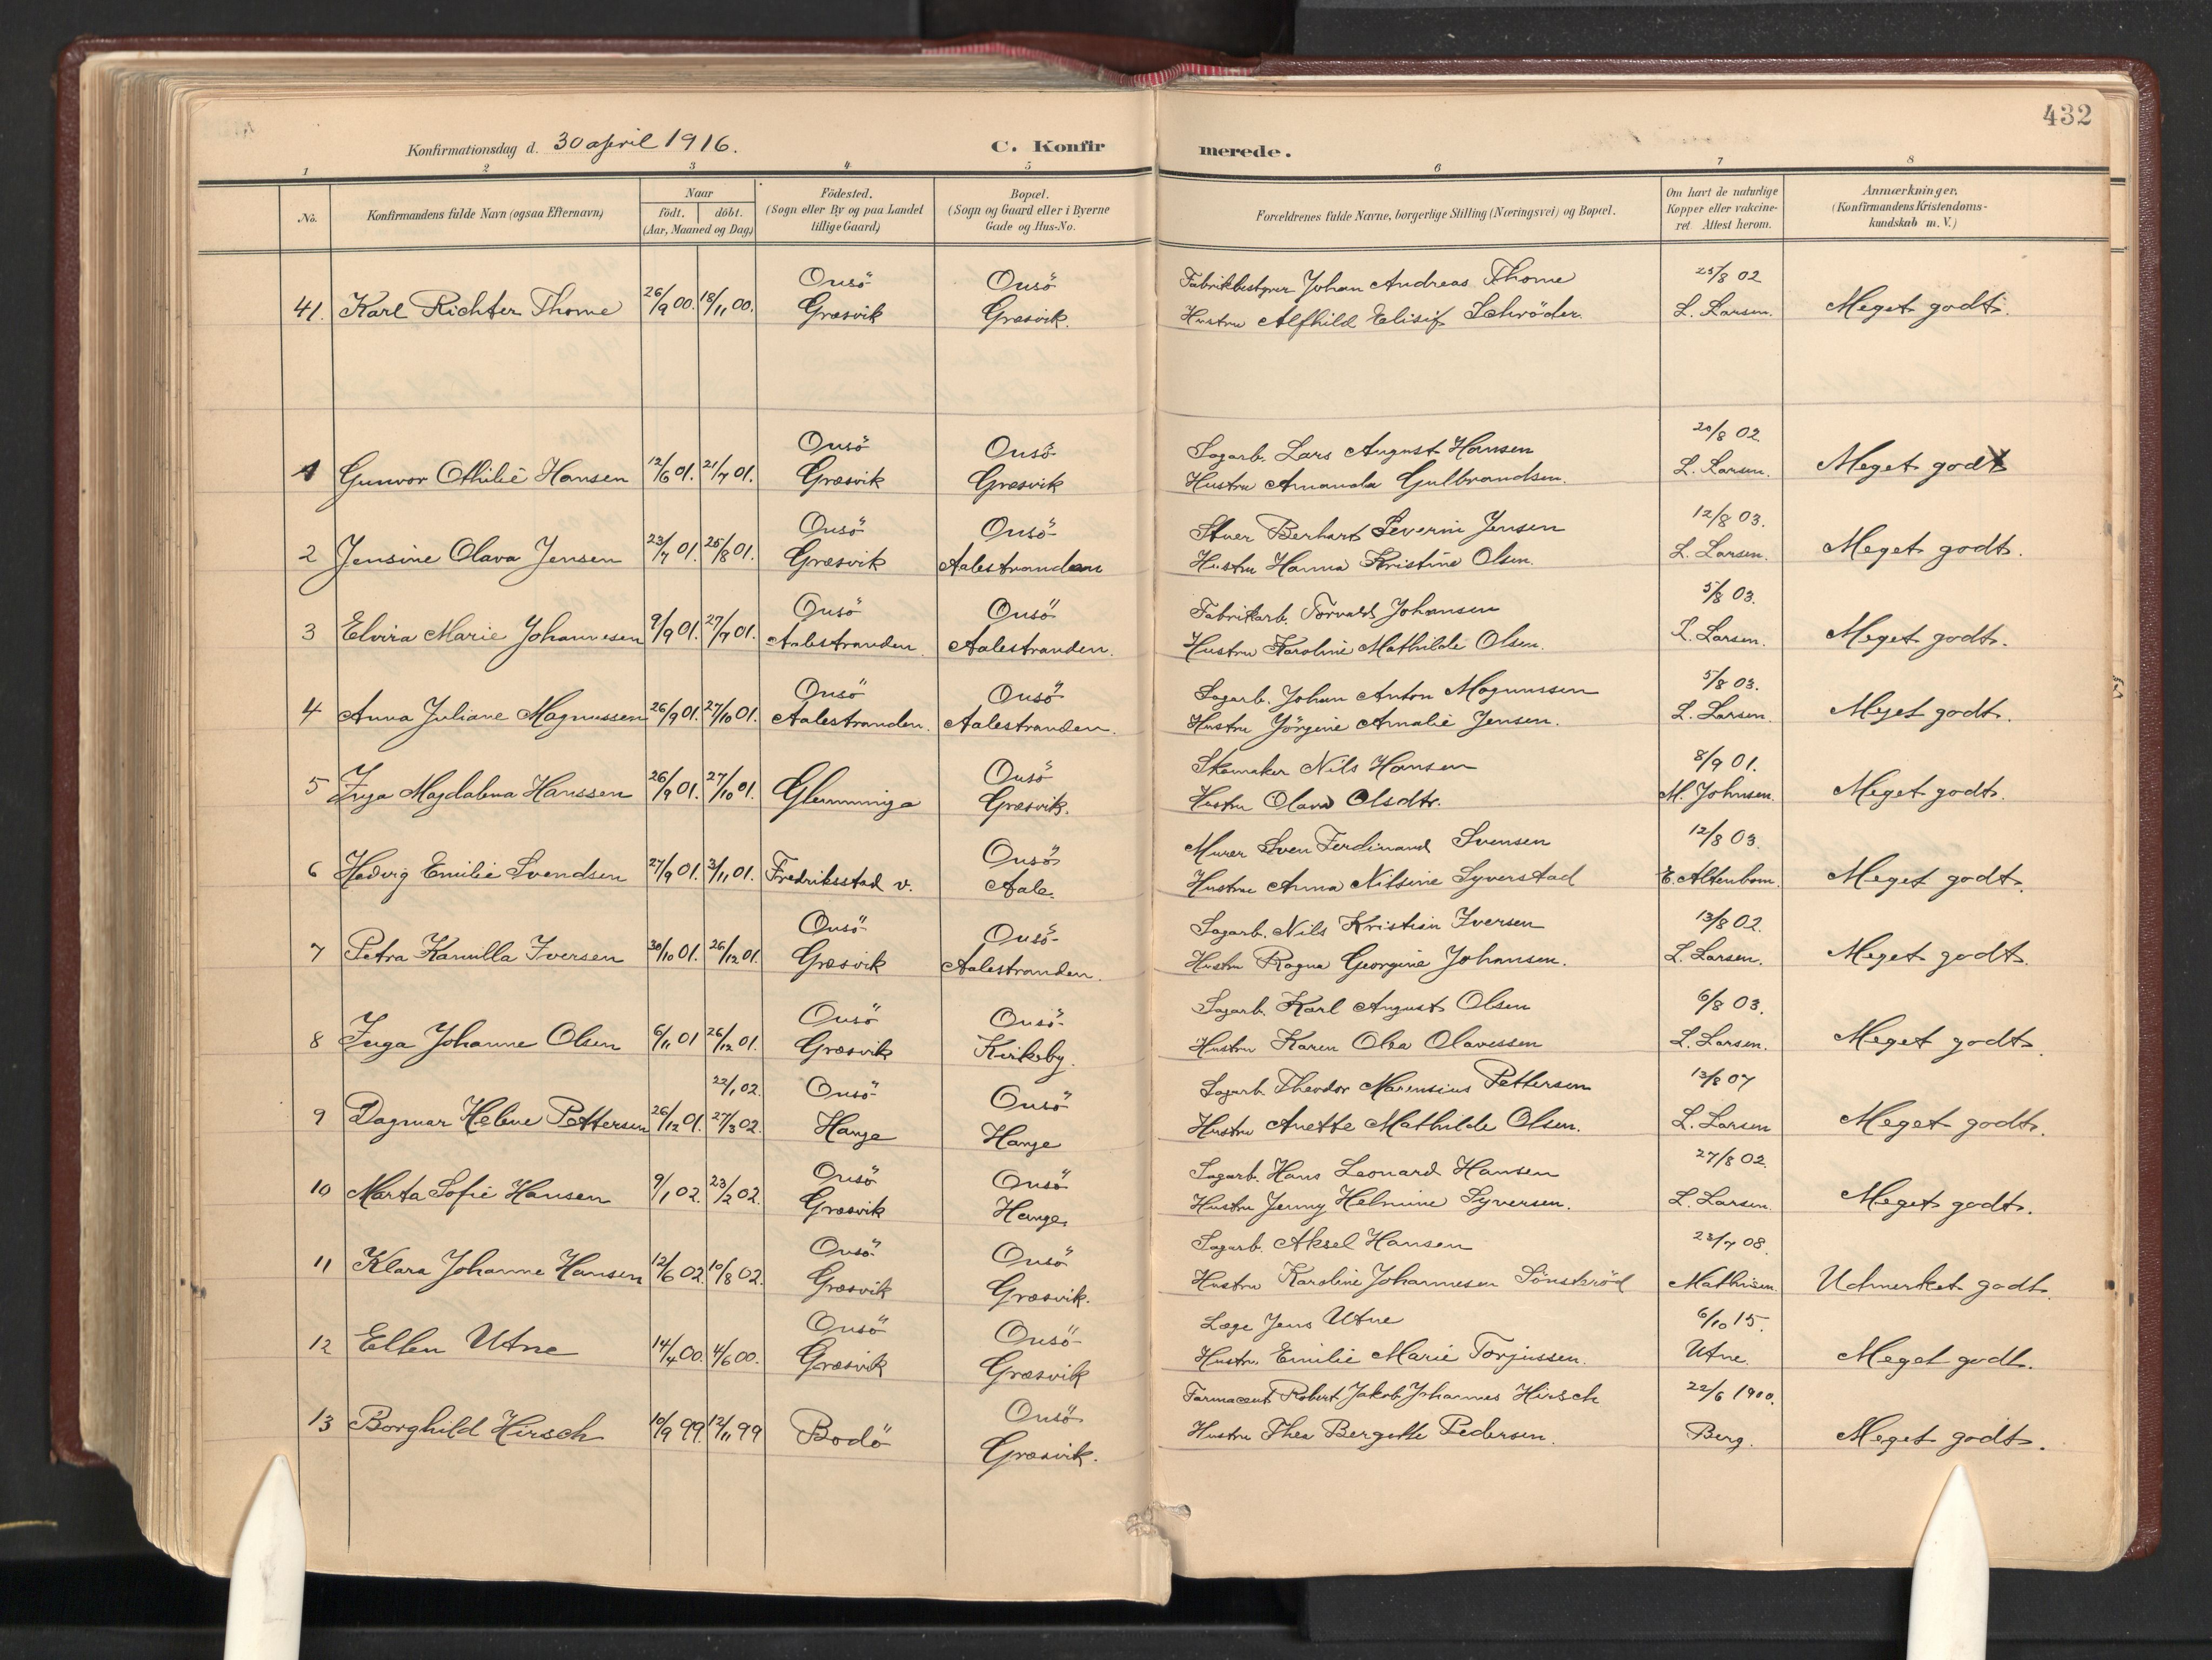 432
Konfirmationsdag d. 30 april 1916.
C. Konfirmerede.
1 2 3 4 5 6 7 8
No.
Konfirmandens fulde Navn (ogsaa Efternavn)
Naar
födt. döbt.
(Aar, Maaned og Dag)
Födested.
(Sogn eller By og paa Landet
tillige Gaard)
Bopæl.
(Sogn og Gaard eller i Byerne
Gade og Hus-No.
Forældrenes fulde Navne, borgerlige Stilling (Næringsvei) og Bopæl.
Om havt de naturlige
Kopper eller vakcine-
ret. Attest herom.
Anmærkninger.
(Konfirmandens Kristendoms-
kundskab m. V.)
Onsö Onsö Fabrikbestyrer Johan Andreas Thome 25/8 02
41. Karl Richter Thome 26/9 00. 18/11 00. Græsvik Græsvik. Hustru Alfhild Elisif Schröder. L. Larsen. Meget godt.
Onsö Onsö Sagarb. Lars August Hansen 20/8 02
1 Gunvor Othilie Hansen 12/6 01. 21/7 01. Græsvik Græsvik Hustru Amanda Gulbrandsen. L. Larsen. Meget godt
Onsö Onsö Stuer Berhart Severin Jensen 12/8 03.
2 Jensine Olava Jensen 23/7 01. 25/8 01. Græsvik Aalestranden Hustru Hanna Kristine Olsen. L. Larsen. Meget godt.
Onsö Onsö Fabrikarb. Torvald Johansen 5/8 03.
3 Elvira Marie Johannesen 9/9 01. 27/7 01. Aalestranden. Aalestranden. Hustru Karoline Mathilde Olsen. L. Larsen. Meget godt.
Onsö Onsö Sagarb. Johan Anton Magnussen 5/8 03.
4 Anna Juliane Magnussen 26/9 01. 27/10 01. Aalestranden. Aalestranden. Hustru Jörgine Amalie Jensen. L. Larsen. Meget godt.
Onsö Skomaker Nils Hansen 8/9 01.
5 Inga Magdalena Hanssen 26/9 01. 27/10 01. Glemminge Græsvik. Hustru Olava Olsdtr. M. Johnsen. Meget godt.
Onsö Murer Sven Ferdinand Svensen 12/8 03.
6 Hedvig Emilie Svendsen 27/9 01. 3/11 01. Fredriksstad v. Aale. Hustru Anna Nilsine Syverstad E. Altenborn. Meget godt.
Onsö Onsö Sagarb. Nils Kristian Iversen 13/8 02.
7 Petra Kamilla Iversen 30/10 01. 26/12 01. Græsvik Aalestranden. Hustru Ragna Georgine Johansen. L. Larsen. Meget godt.
Onsö Onsö Sagarb. Karl August Olsen 6/8 03.
8 Inga Johanne Olsen 6/11 01 26/12 01. Græsvik Kirkeby. Hustru Karen Olea Olavessen L. Larsen. Meget godt.
22/1 02. Onsö Onsö Sagarb. Theodor Marensius Pettersen 13/8 07
9 Dagmar Helene Pettersen 26/12 01. 27/3 02. Hauge Hauge Hustru Anette Mathilde Olsen. L. Larsen Meget godt.
Onsö Onsö Sagarb. Hans Leonard Hansen 27/8 02.
10 Marta Sofie Hansen 9/1 02. 23/2 02. Græsvik Hauge Hustru Jenny Helmine Syversen. L. Larsen. Meget godt.
Onsö Onsö Sagarb. Aksel Hansen 23/7 08.
11 Klara Johanne Hansen 12/6 02. 10/8 02. Græsvik Græsvik. Hustru Karoline Johannesen Sönsteröd Mathisen. Udmerket godt.
Onsö Onsö Læge Jens Utne 6/10 15.
12 Ellen Utne 14/4 00. 4/6 00. Græsvik Græsvik Hustru Emilie Marie Torjussen. Utne. Meget godt.
Onsö Farmaceut Robert Jakob Johannes Hirsch 22/6 1900.
13 Borghild Hirsch 10/9 99. 12/11 99 Bodö Græsvik. Hustru Thea Bergitte Pedersen. Berg. Meget godt.